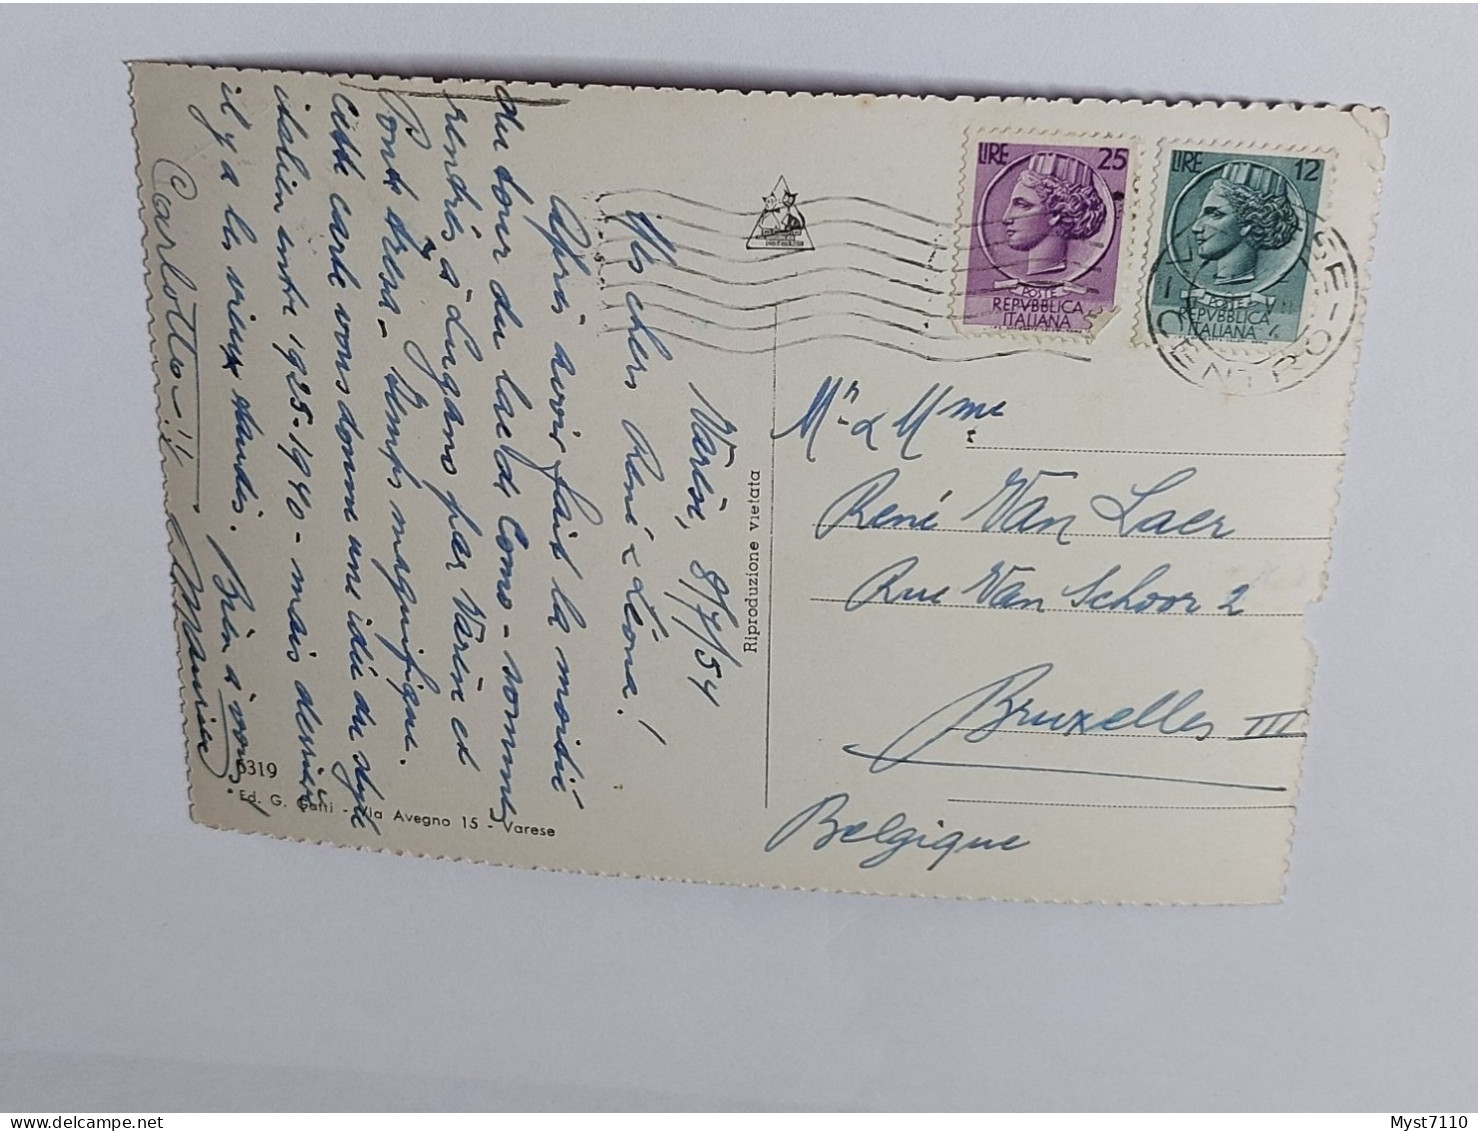 Varèse, 8/7/54
Mes chers René & Léona!
Après avoir fait la moitié
du tour du lac de Como - sommes
rendus à Lugano par Varèse et
Ponte Tresa - Temps magnifique.
Cette carte vous donne une idée du style
italien entre 1925-1940 - mais derrière
il y a les vieux stands. Bien à vous,
Carlotta!
Maurice
LIRE 25
POSTE
REPVBBLICA
ITALIANA
LIRE 12
POSTE
REPVBBLICA
ITALIANA
VARESE
CENTRO
Mr & Mme
René Van Laer
Rue Van Schoor 2
Bruxelles III
Belgique
Riproduzione vietata
5319
Ed. G. Gatti - Via Avegno 15 - Varese
Myst7110